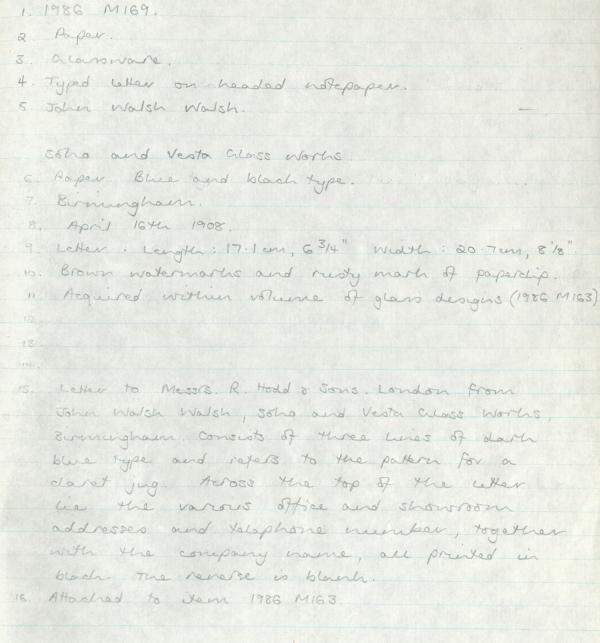 1. 1986 M169.
2 Paper.
3. Glassware.
4. Typed letter on headed notepaper.
5 John Walsh Walsh.
Soho and Vesta Glass Works
6. Paper. Blue and black type.
7. Birmingham.
8. April 16th 1908.
9. Letter. Length: 17.1cm, 6 3/4" Width: 20.7cm, 8 1/8"
10. Brown watermarks and rusty mark of paperclip.
11 Acquired within volume of glass designs (1986 M163)
12.
13.
14.
15. Letter to Messrs. R. Hodd & Sons. London from
John Walsh Walsh, Soho and Vesta Glass Works,
Birmingham. Consists of three lines of dark
blue type and refers to the pattern for a
claret jug. Across the top of the letter
lie the various office and showroom
addresses and telephone number, together
with the company name, all printed in
black. The reverse is blank.
16. Attached to item 1986 M163.